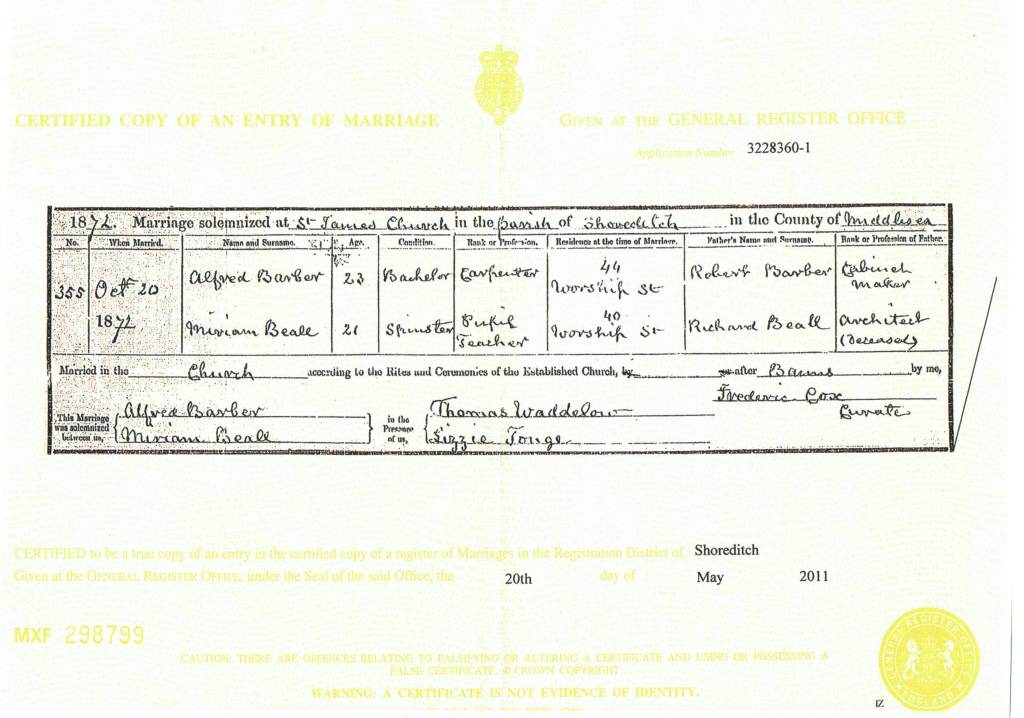 CERTIFIED COPY OF AN ENTRY OF MARRIAGE
GIVEN AT THE GENERAL REGISTER OFFICE
Application Number 3228360-1
1872. Marriage solemnized at St James Church in the Parish of Shoreditch in the County of Middlesex
No. When Married. Name and Surname. Age. Condition. Rank or Profession. Residence at the time of Marriage. Father's Name and Surname. Rank or Profession of Father.
355 Oct 20 1872
Alfred Barber 23 Bachelor Carpenter 44 Worship St Robert Barber Cabinet Maker
Miriam Beall 21 Spinster Pupil Teacher 40 Worship St Richard Beall Architect (Deceased)
Married in the Church according to the Rites and Ceremonies of the Established Church, by or after Banns by me,
Frederic Cox
Curate
This Marriage was solemnized between us,
Alfred Barber
Miriam Beall
in the Presence of us,
Thomas Waddelow
Lizzie Tonge
CERTIFIED to be a true copy of an entry in the certified copy of a register of Marriages in the Registration District of Shoreditch
Given at the GENERAL REGISTER OFFICE, under the Seal of the said Office, the 20th day of May 2011
MXF 298799
CAUTION: THERE ARE OFFENCES RELATING TO FALSIFYING OR ALTERING A CERTIFICATE AND USING OR POSSESSING A
FALSE CERTIFICATE. © CROWN COPYRIGHT
WARNING: A CERTIFICATE IS NOT EVIDENCE OF IDENTITY.
GENERAL REGISTER OFFICE ENGLAND
IZ